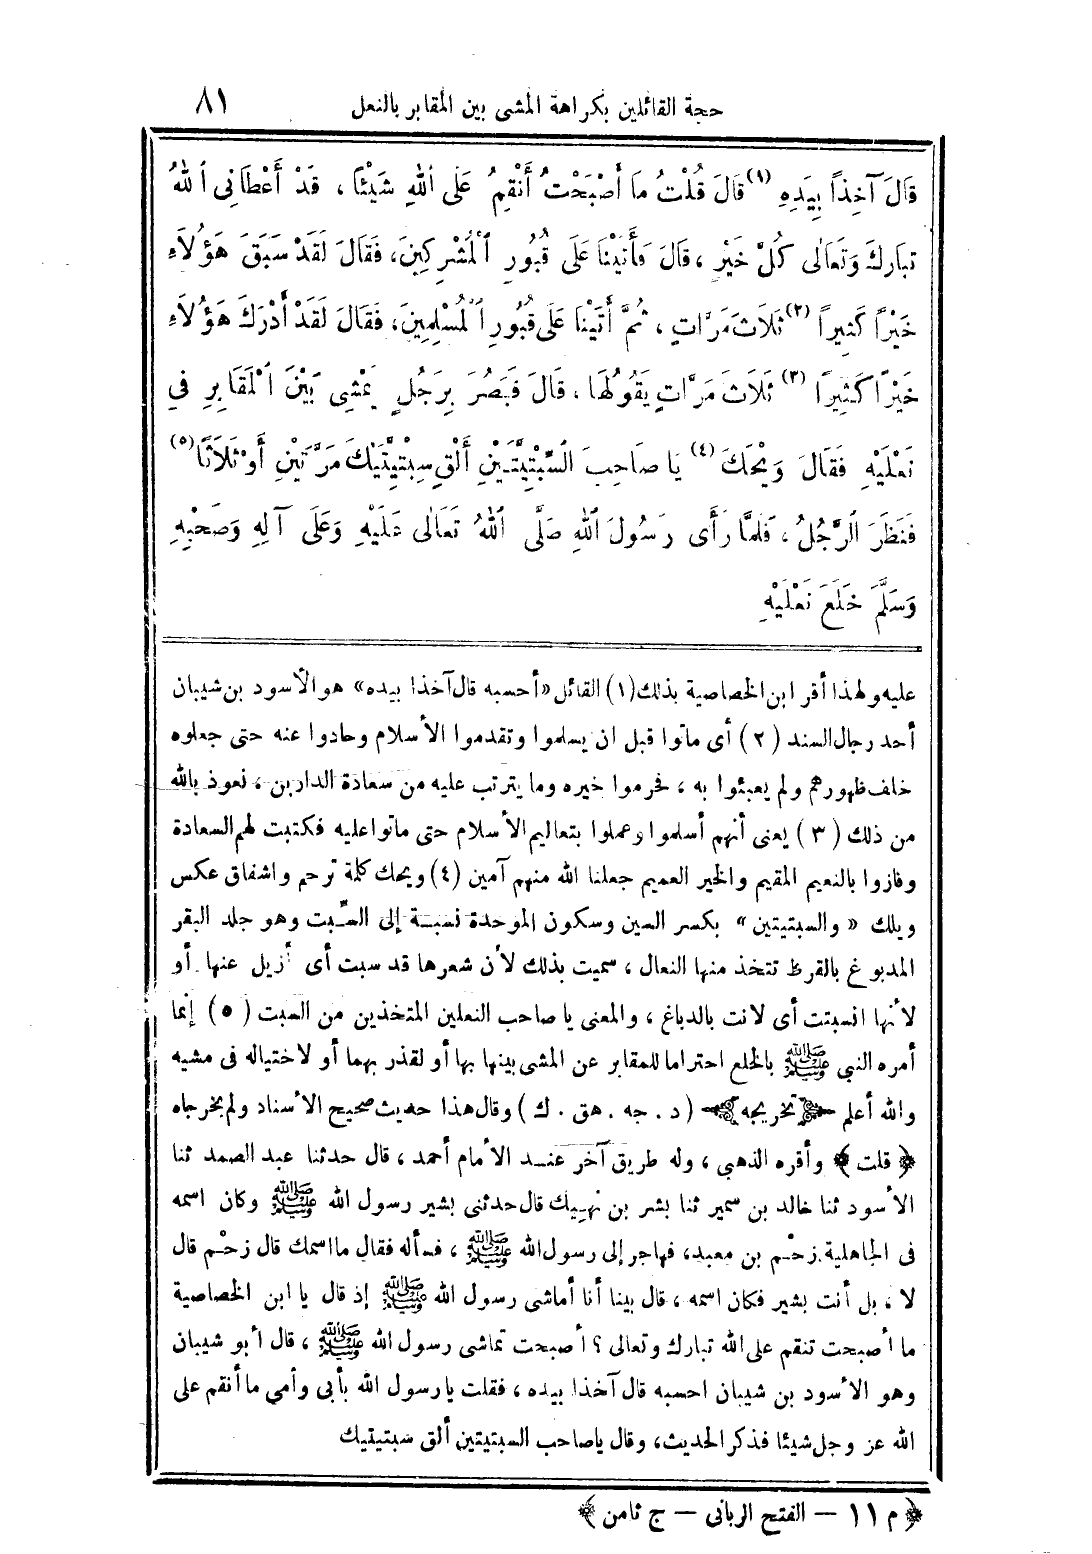 حجة القائلين بكراهة المشى بين المقابر بالنعل ٨١
قَالَ آخِذاً بِيَدِهِ (١) قَالَ قُلْتُ مَا أَصْبَحْتُ أَنْقِمُ عَلَى اللهِ شَيْئًا، قَدْ أَعْطَانِى اللهُ
تَبَارَكَ وَتَعَالَى كُلَّ خَيْرٍ، قَالَ فَأَتَيْنَا عَلَى قُبُورِ الْمُشْرِكِينَ، فَقَالَ لَقَدْ سَبَقَ هَؤُلَاءِ
خَيْراً كَثِيراً (٢) ثَلَاثَ مَرَّاتٍ، ثُمَّ أَتَيْنَا عَلَى قُبُورِ الْمُسْلِمِينَ، فَقَالَ لَقَدْ أَدْرَكَ هَؤُلَاءِ
خَيْرًا كَثِيرًا (٣) ثَلَاثَ مَرَّاتٍ يَقُولُهَا، قَالَ فَبَصُرَ بِرَجُلٍ يَمْشِى بَيْنَ الْمَقَابِرِ فِي
نَعْلَيْهِ فَقَالَ وَيْحَكَ (٤) يَا صَاحِبَ السِّبْتِيَّتَيْنِ أَلْقِ سِبْتِيَّتَيْكَ مَرَّتَيْنِ أَوْ ثَلَاثًا (٥)
فَنَظَرَ الرَّجُلُ، فَلَمَّا رَأَى رَسُولَ اللهِ صَلَّى اللهُ تَعَالَى عَلَيْهِ وَعَلَى آلِهِ وَصَحْبِهِ
وَسَلَّمَ خَلَعَ نَعْلَيْهِ
عليه ولهذا أقر ابن الخصاصية بذلك (١) القائل «أحسبه قال آخذا بيده» هو الأسود بن شيبان
أحد رجال السند (٢) أى ماتوا قبل ان يسلموا وتقدموا الأسلام وحادوا عنه حتى جعلوه
خلف ظهورهم ولم يعبئوا به، فحرموا خيره وما يترتب عليه من سعادة الدارين، نعوذ بالله
من ذلك (٣) يعنى أنهم أسلموا وعملوا بتعاليم الأسلام حتى ماتوا عليه فكتبت لهم السعادة
وفازوا بالنعيم المقيم والخير العميم جعلنا الله منهم آمين (٤) ويحك كلمة ترحم واشفاق عكس
ويلك «والسبتيتين» بكسر السين وسكون الموحدة نسبة إلى السِّبت وهو جلد البقر
المدبوغ بالقرظ تتخذ منها النعال، سميت بذلك لأن شعرها قد سبت أى أزيل عنها أو
لأنها انسبتت أى لانت بالدباغ، والمعنى يا صاحب النعلين المتخذين من السبت (٥) إنما
أمره النبي ﷺ بالخلع احتراما للمقابر عن المشى بينها بها أو لقذر بهما أو لاختياله فى مشيه
والله أعلم ﴿تخريجه﴾ (د . جه . هق . ك) وقال هذا حديث صحيح الأسناد ولم يخرجاه
﴿قلت﴾ وأقره الذهبي، وله طريق آخر عند الأمام أحمد، قال حدثنا عبد الصمد ثنا
الأسود ثنا خالد بن سمير ثنا بشر بن نهيك قال حدثنى بشير رسول الله ﷺ وكان اسمه
فى الجاهلية زحْم بن معبد، فهاجر إلى رسول الله ﷺ، فسأله فقال ما اسمك قال زحْم قال
لا، بل أنت بشير فكان اسمه، قال بينا أنا أماشى رسول الله ﷺ إذ قال يا ابن الخصاصية
ما أصبحت تنقم على الله تبارك وتعالى؟ أصبحت تماشى رسول الله ﷺ، قال أبو شيبان
وهو الأسود بن شيبان احسبه قال آخذا بيده، فقلت يا رسول الله بأبى وأمي ما أنقم على
الله عز وجل شيئا فذكر الحديث، وقال يا صاحب السبتيتين ألق سبتيتيك
﴿م ١١ — الفتح الربانى — ج ثامن﴾